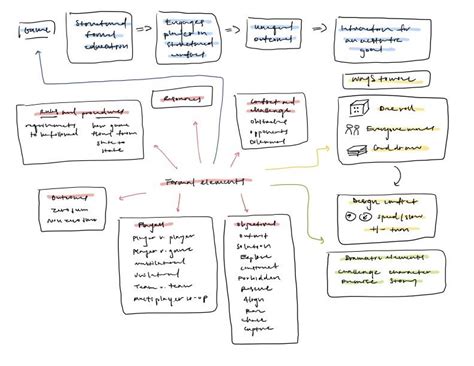 Game
Structured
formal
education
Engages
players in
structured
conflict
unequal
outcome
Interaction for
goal
Ways to move
Dice roll
Everyone moves
Card draw
Rules and procedures
requirements
to be followed
how game
from
state to
state
Resources
Conflict and
challenge
Obstacles
opponents
Dilemmas
Formal elements
Outcome
zero sum
non zero sum
Players
Player v. player
Player v. game
unilateral
Team v. team
Multiplayer co-op
Objectives
Outwit
Solution
Explore
Construct
Forbidden
Rescue
Align
Race
Chase
Capture
Design context
speed/slow
+/- turn
Dramatic elements
challenge character
premise story